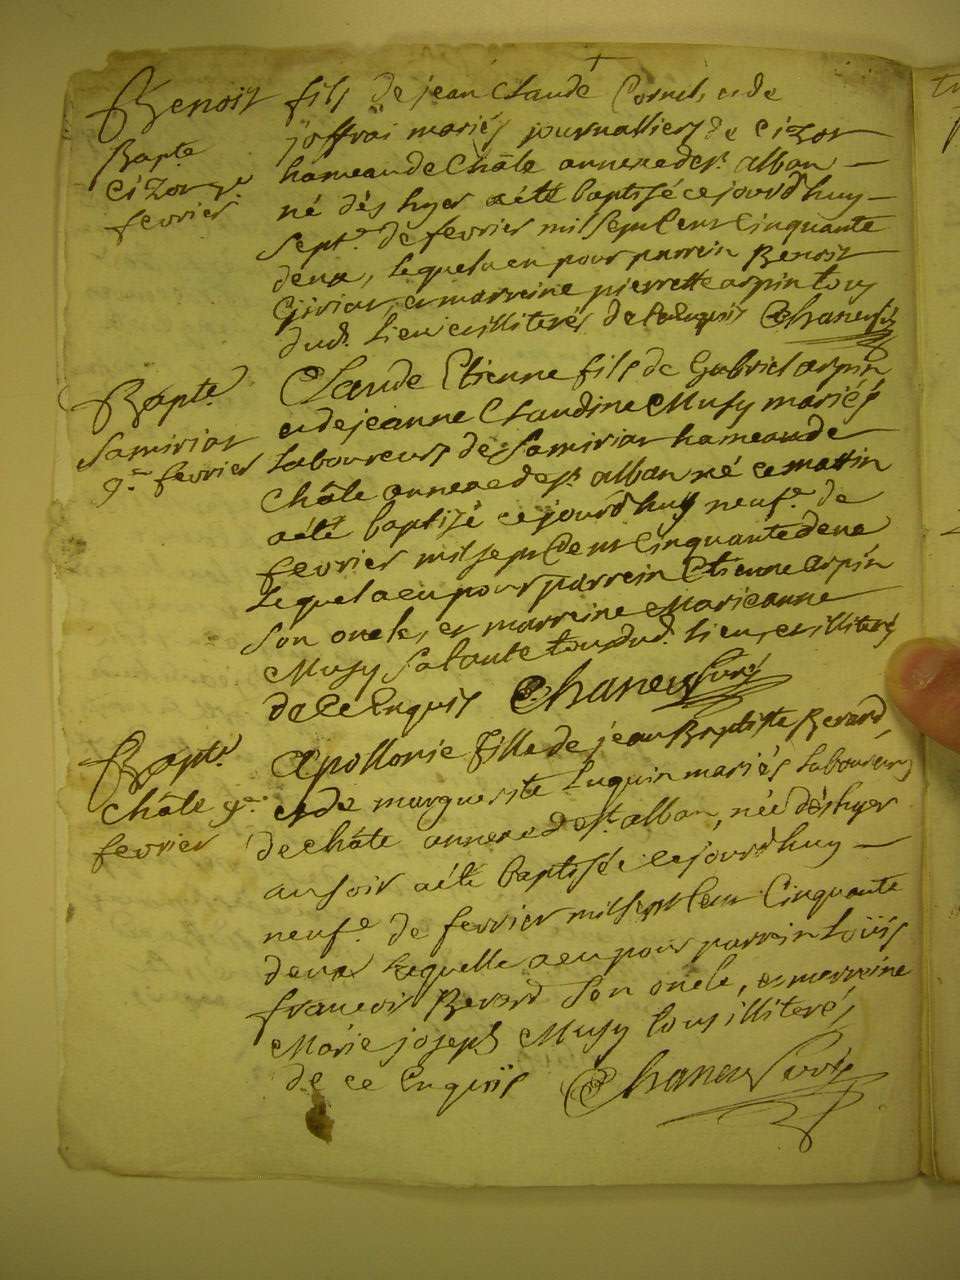 Benoit fils de jean Claude Cornet, et de
joffrai mariés journalliers de Cizor
Bapte
hameau de Châle annexe de st. alban
Cizor 7e
né dès hyer a été baptisé cejourd'huy
fevrier
septe. de fevrier mil sept Cent Cinquante
deux, lequel a eu pour parrein Benoit
et marreine pierrette arpin tous
dud. lieu et illiterés de ce Enquis Chanel
Claude Etienne fils de Gabriel arpin
Bapte.
et de jeanne Claudine Musy mariés
Samiriat
Laboureurs de Samiriat hameau de
9e fevrier
Châle annexe de st. alban né ce matin
a été baptisé cejourd'huy neufe. de
fevrier mil sept Cent Cinquante deux
Lequel a eu pour parrein Etienne arpin
son oncle, et marreine Marieanne
Musy sa tante tous dud. lieu, et illiterés
de Ce Enquis Chanel Curé
Apollonie fille de jean Baptiste Berard,
Bapte.
et de marguerite Luquin mariés Laboureurs
Châle 9e.
de châle annexe de st. alban, née dès hyer
fevrier
au soir a été baptisée cejourd'huy
neufe. de fevrier mil sept Cent Cinquante
deux Laquelle a eu pour parrein Loüis
françois Berard son oncle, et marreine
Marie joseph Musy tous illiterés
de ce Enquis Chanel Curé